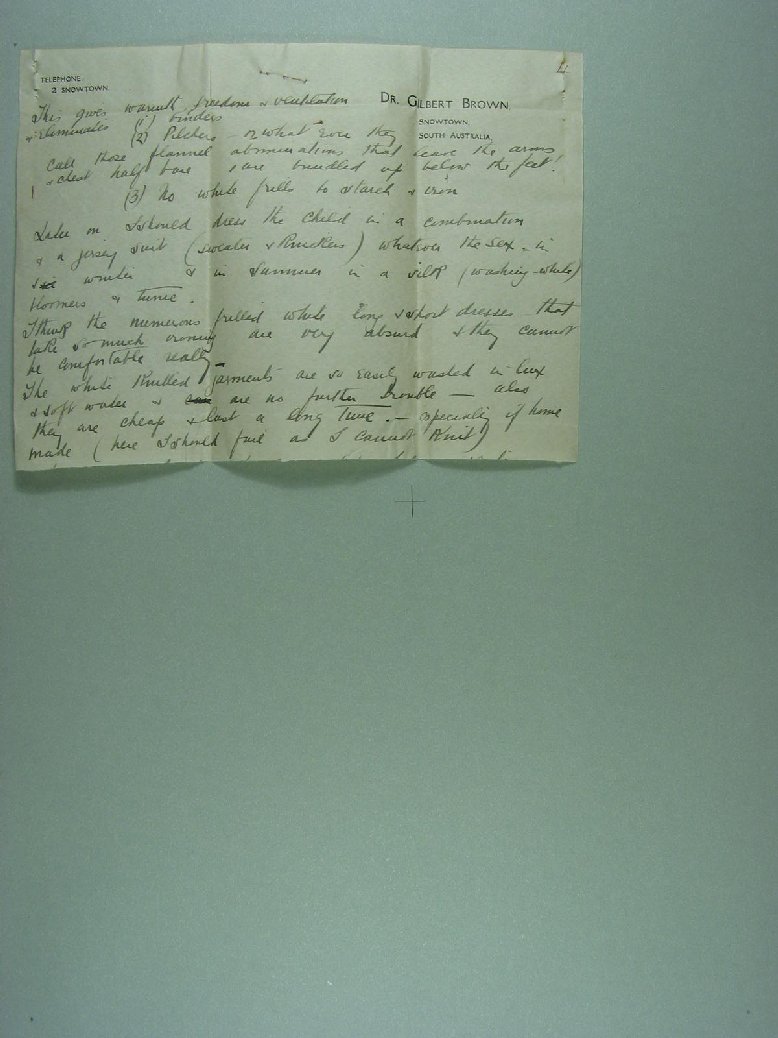 TELEPHONE
2 SNOWTOWN.
DR. GILBERT BROWN
SNOWTOWN,
SOUTH AUSTRALIA,
This gives warmth, freedom & ventilation
& eliminates (1) binders
(2) Pilchers - or what ever they
call those flannel abominations that leave the arms
& chest half bare & are bundled up below the feet!
(3) No white frills to starch & iron
Later on I should dress the child in a combination
& a jersey suit (sweater & Knickers) whatever the sex - in
winter & in Summer in a silk (washing - white)
bloomers & tunic.
I think the numerous frilled white long & short dresses that
take so much ironing are very absurd & they cannot
be comfortable really -
The white Knitted garments are so easily washed in lux
& soft water & are no further trouble - also
they are cheap & last a long time. - specially if home
made (here I should fail as I cannot Knit)